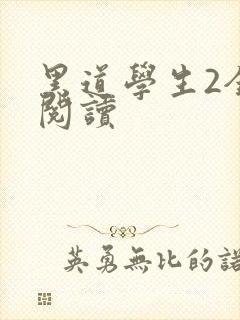 黑道學生2全
閱讀
英勇無比的諾